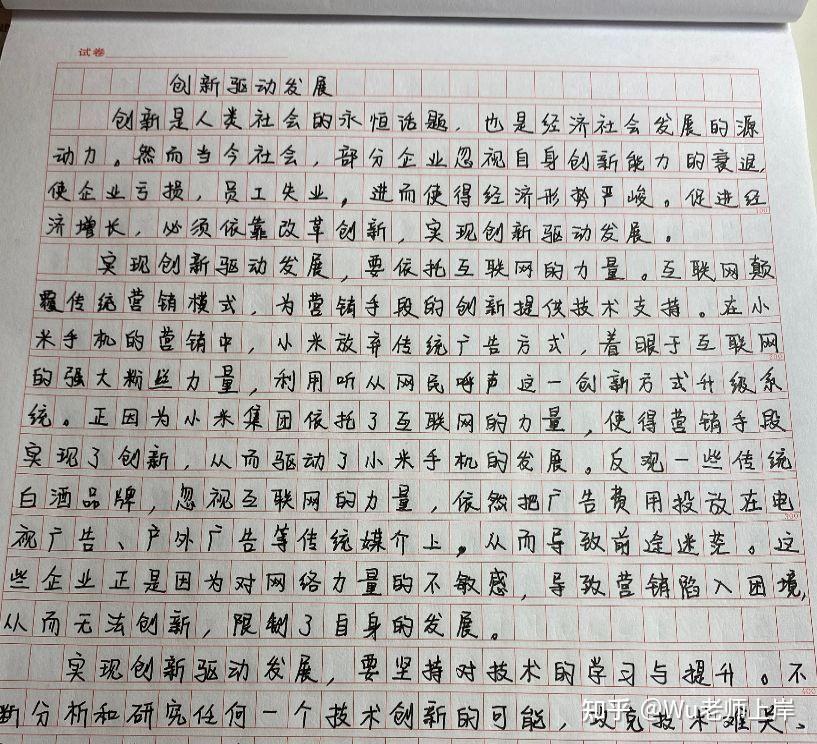 试卷
创新驱动发展
创新是人类社会的永恒话题，也是经济社会发展的源
动力。然而当今社会，部分企业忽视自身创新能力的衰退，
使企业亏损，员工失业，进而使得经济形势严峻。促进经
济增长，必须依靠改革创新，实现创新驱动发展。
100
实现创新驱动发展，要依托互联网的力量。互联网颠
覆传统营销模式，为营销手段的创新提供技术支持。在小
米手机的营销中，小米放弃传统广告方式，着眼于互联网
200
的强大粉丝力量，利用听从网民呼声这一创新方式升级系
统。正因为小米集团依托了互联网的力量，使得营销手段
实现了创新，从而驱动了小米手机的发展。反观一些传统
白酒品牌，忽视互联网的力量，依然把广告费用投放在电
300
视广告、户外广告等传统媒介上，从而导致前途迷茫。这
些企业正是因为对网络力量的不敏感，导致营销陷入困境，
从而无法创新，限制了自身的发展。
实现创新驱动发展，要坚持对技术的学习与提升。不
400
断分析和研究任何一个技术创新的可能，攻克技术难关、
知乎 @Wu老师上岸